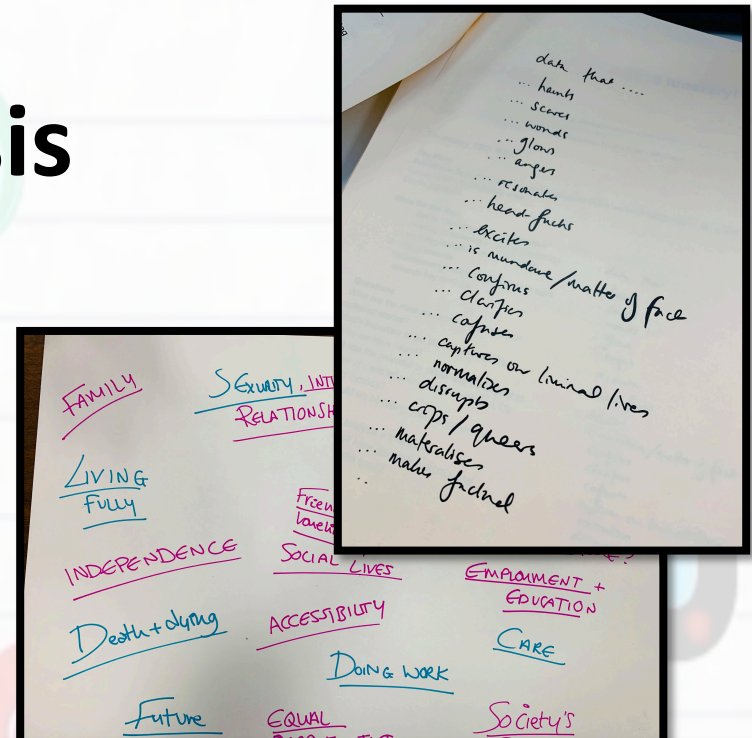 is
data that ....
... haunts
... scares
... wonds
... glows
... angers
... resonates
... head-fucks
... excites
... is mundane/matter of face
... confirms
... clarifies
... cofuses
... captures our liminal lives
... normalises
... disrupts
... crips/queers
... materalises
... makes factual
..
FAMILY
SEXUALITY, INT
RELATIONSH
LIVING
FULLY
Frien
Loneli
SOCIAL LIVES
INDEPENDENCE
EMPLOYMENT +
EDUCATION
Death + dying
ACCESSIBILITY
CARE
DOING WORK
Future
EQUAL
Society's